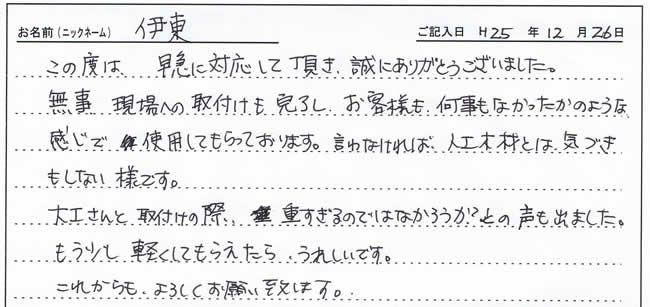 お名前(ニックネーム) 伊東 ご記入日 H25 年 12 月 26日
この度は、早急に対応して頂き、誠にありがとうございました。
無事 現場への取付けも完了し、お客様も何事もなかったかのような
感じで 使用してもらっております。言わなければ、人工木材とは気づき
もしない様です。
大工さんと取付けの際、重すぎるのではなかろうか?との声も出ました。
もう少し軽くしてもらえたら、うれしいです。
これからも、よろしくお願い致します。